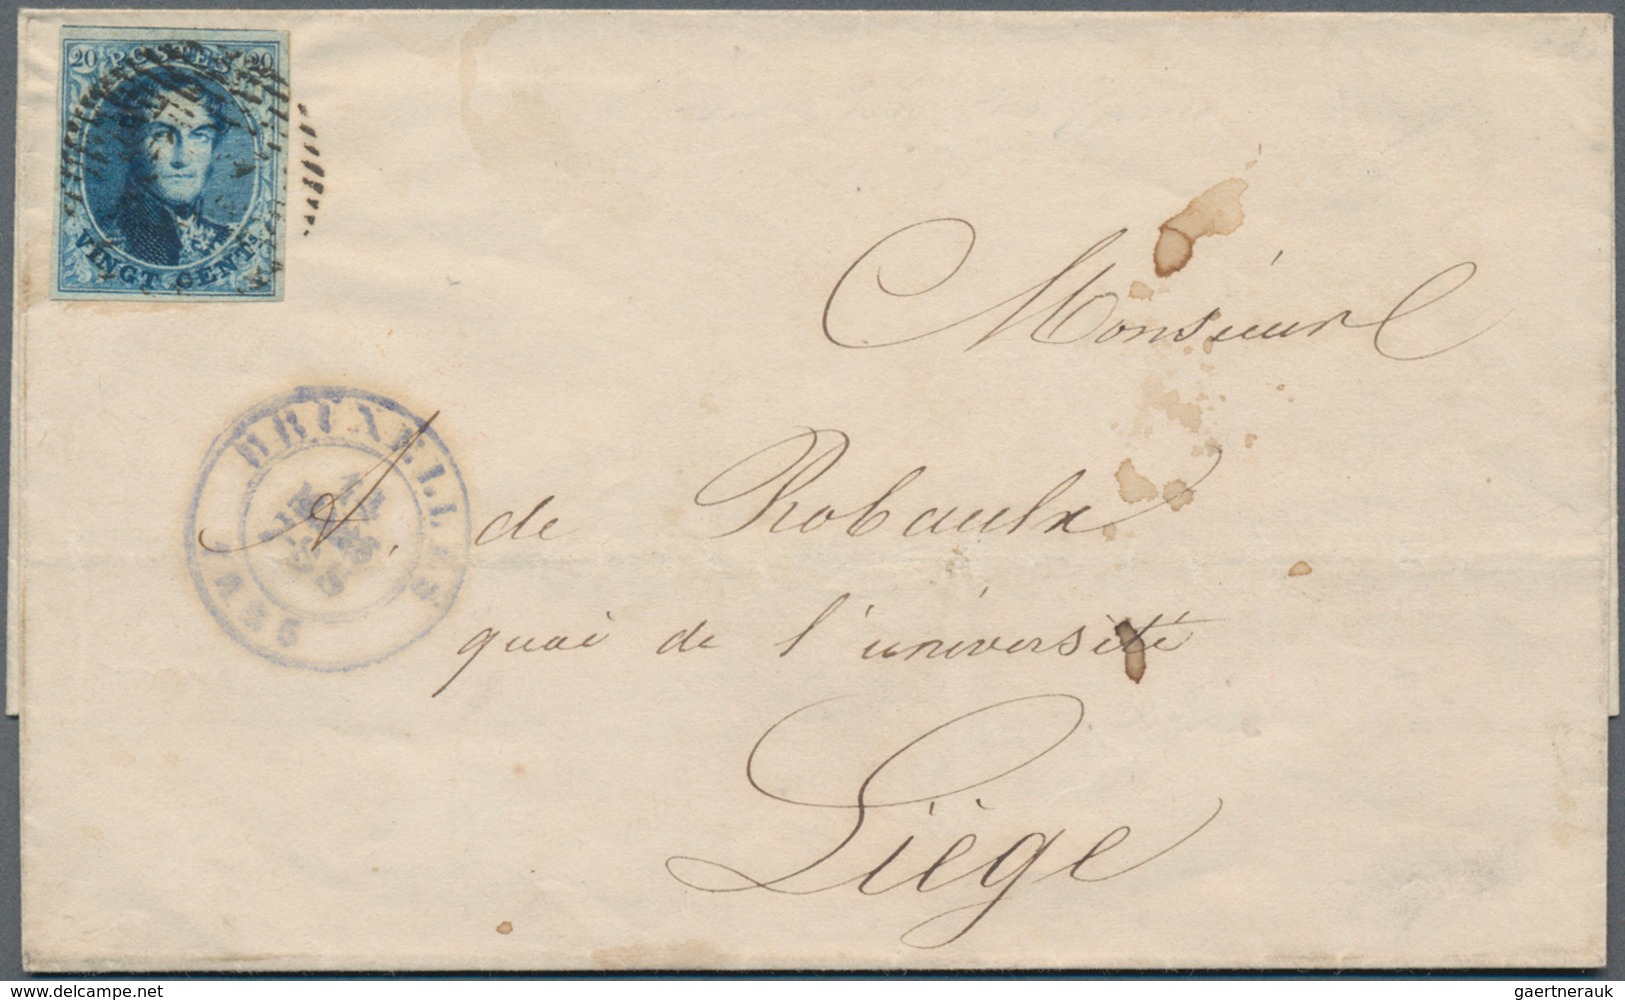 20 POSTES 20
VINGT CENTS
BRUXELLES
1855
Monsieur
A. de Robaulx
quai de l'université
Liège
delcampe.net
gaertnerauk